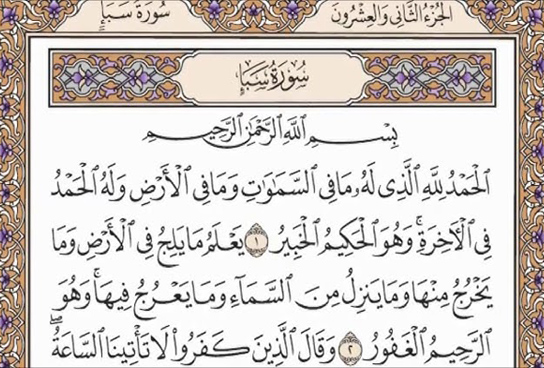 سُورَةُ سَبَإٍ الجُزْءُ الثَّانِي وَالعِشْرُونَ
سُورَةُ سَبَإٍ
بِسْمِ ٱللَّهِ ٱلرَّحْمَٰنِ ٱلرَّحِيمِ
ٱلْحَمْدُ لِلَّهِ ٱلَّذِى لَهُۥ مَا فِى ٱلسَّمَٰوَٰتِ وَمَا فِى ٱلْأَرْضِ وَلَهُ ٱلْحَمْدُ
فِى ٱلْءَاخِرَةِ ۚ وَهُوَ ٱلْحَكِيمُ ٱلْخَبِيرُ ١ يَعْلَمُ مَا يَلِجُ فِى ٱلْأَرْضِ وَمَا
يَخْرُجُ مِنْهَا وَمَا يَنزِلُ مِنَ ٱلسَّمَآءِ وَمَا يَعْرُجُ فِيهَا ۚ وَهُوَ
ٱلرَّحِيمُ ٱلْغَفُورُ ٢ وَقَالَ ٱلَّذِينَ كَفَرُوا۟ لَا تَأْتِينَا ٱلسَّاعَةُ ۖ